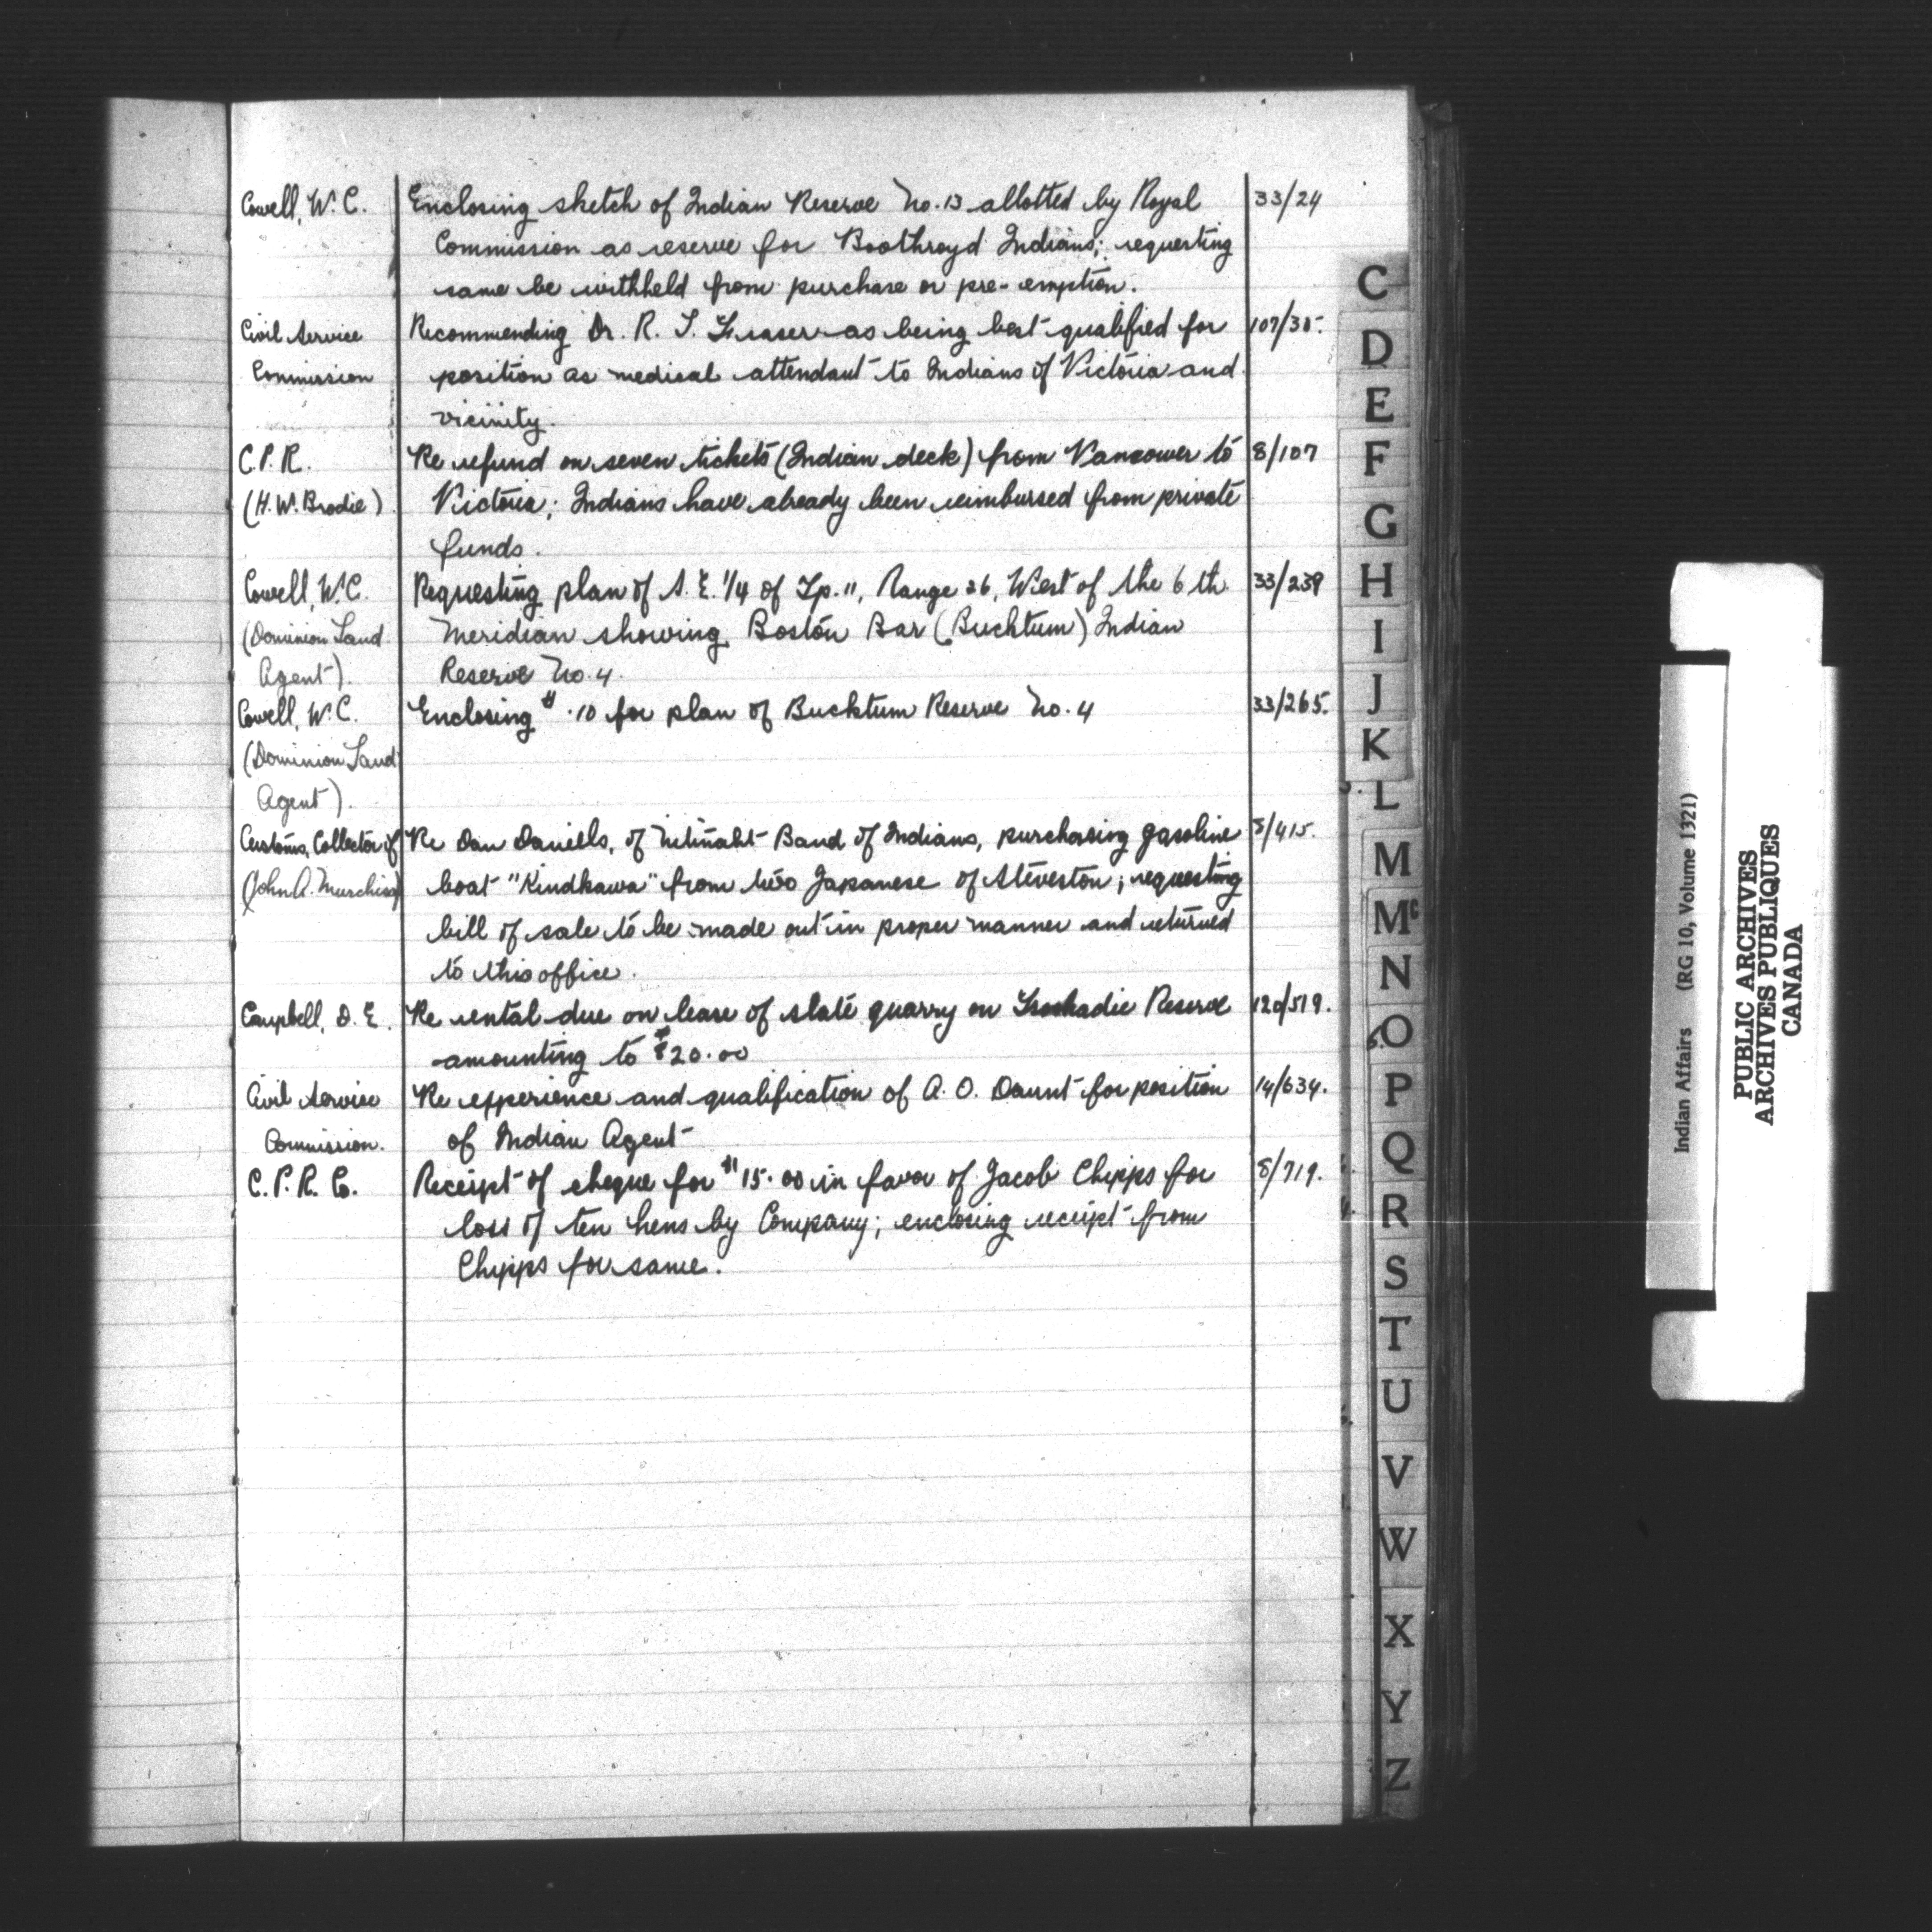 Cowell, W. C. Enclosing sketch of Indian Reserve No. 13 allotted by Royal 33/24
Commission as reserve for Boothroyd Indians; requesting
same be withheld from purchase or pre-emption.
Civil Service Recommending Dr. R. L. Fraser as being best qualified for 107/35.
Commission position as medical attendant to Indians of Victoria and
vicinity.
C. P. R. Re refund on seven tickets (Indian deck) from Vancouver to 8/107
(H. W. Brodie) Victoria; Indians have already been reimbursed from private
funds.
Cowell, W. C. Requesting plan of S. E. 1/4 of Tp. 11, Range 26, West of the 6th 33/239
(Dominion Land Meridian showing Boston Bar (Bucktum) Indian
Agent). Reserve No. 4.
Cowell, W. C. Enclosing $ .10 for plan of Bucktum Reserve No. 4 33/265.
(Dominion Land
Agent).
Customs, Collector of Re Dan Daniells, of Nitinaht Band of Indians, purchasing gasoline 8/415.
(John A. Murchison) boat "Kindkawa" from two Japanese of Steveston; requesting
bill of sale to be made out in proper manner and returned
to this office.
Campbell, D. E. Re rental due on lease of slate quarry on Reserve 120/519.
amounting to $20.00
Civil Service Re experience and qualification of A. O. Daunt for position 14/634.
Commission. of Indian Agent
C. P. R. Co. Receipt of cheque for $15.00 in favor of Jacob Chipps for 8/719.
loss of ten hens by Company; enclosing receipt from
Chipps for same.
C
D
E
F
G
H
I
J
K
L
M
Mc
N
O
P
Q
R
S
T
U
V
W
X
Y
Z
Indian Affairs (RG 10, Volume 1321)
PUBLIC ARCHIVES
ARCHIVES PUBLIQUES
CANADA